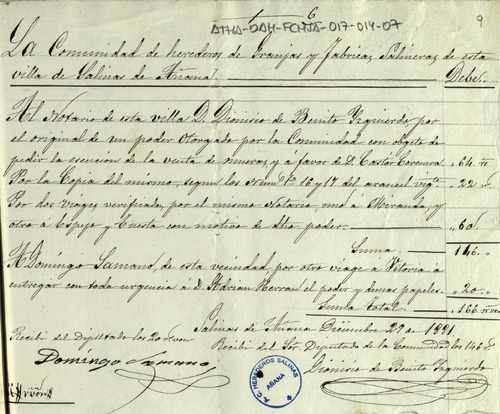 6
ATHA-DAH-FCHSA-017-014-07
9
La Comunidad de herederos de Granjas y Fabricas Salineras de esta
villa de Salinas de Añana Debe.
Al Notario de esta villa D. Dionisio de Benito Yzquierdo, por
el original de un poder otorgado por la Comunidad con objeto de
pedir la esencion de la venta de mueras, y a favor de D. Castor 64. rs
Por la Copia del mismo, segun los Num.os 16 y 17 del arancel vig.te 22
Por dos viages verificados, por el mismo Notario, uno á Miranda, y
otro á Espejo y Cuesta con motivo de dho poder. 60.
Suma 146.
A Domingo Samano, de esta vecindad, por otro viage a Vitoria á
entregar con toda urgencia á D. Adrian Herran el poder y demas papeles. 20.
Sunta total. 166 rs von
Salinas de Añana Diciembre 29 de 1881
Recibi del Diputado los 20 rs von Recibi del Sor. Diputado de la Comunidad los 146 rs
Domingo Samano Dionisio de Benito Yzquierdo
A.C. HEREDEROS SALINAS
AÑANA